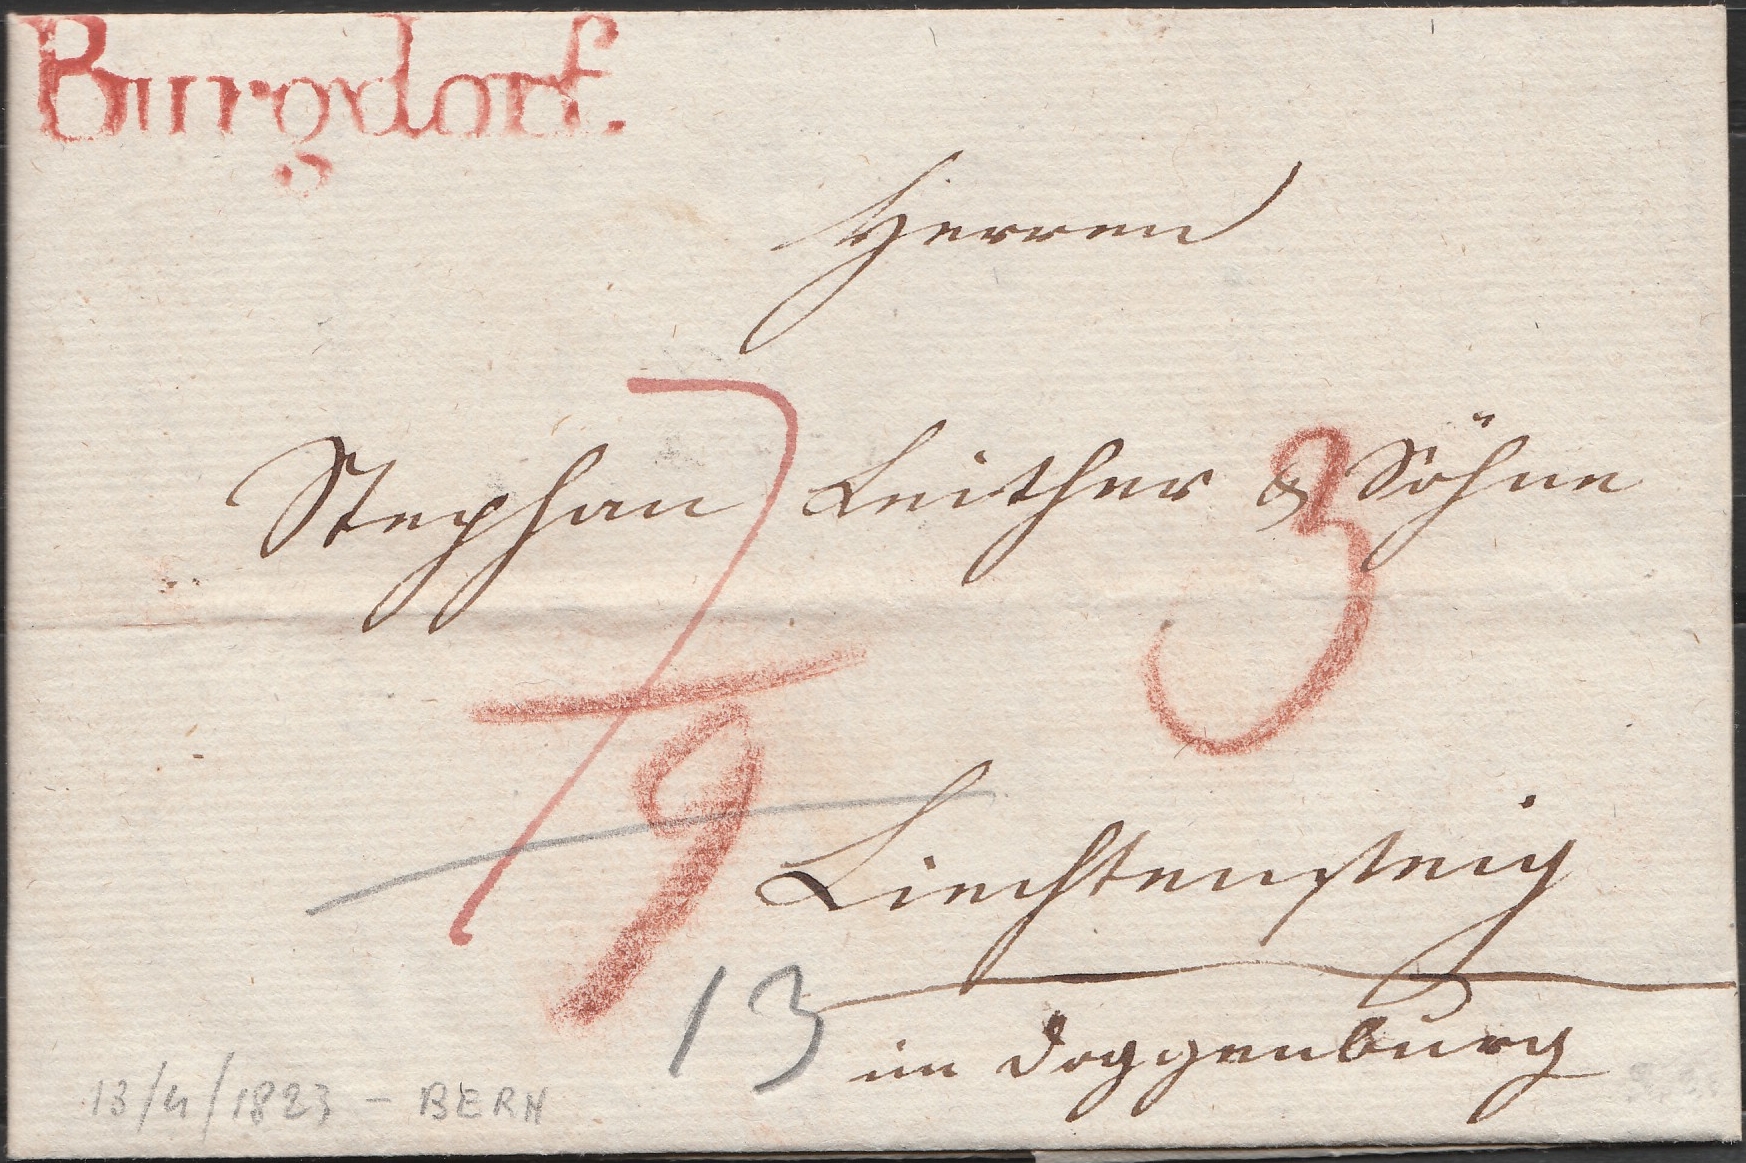 Burgdorf.
Herren
Stephan Leither & Söhne
7
3
9
Liechtensteig
13
im Doggenburg
13/4/1823 - BERN